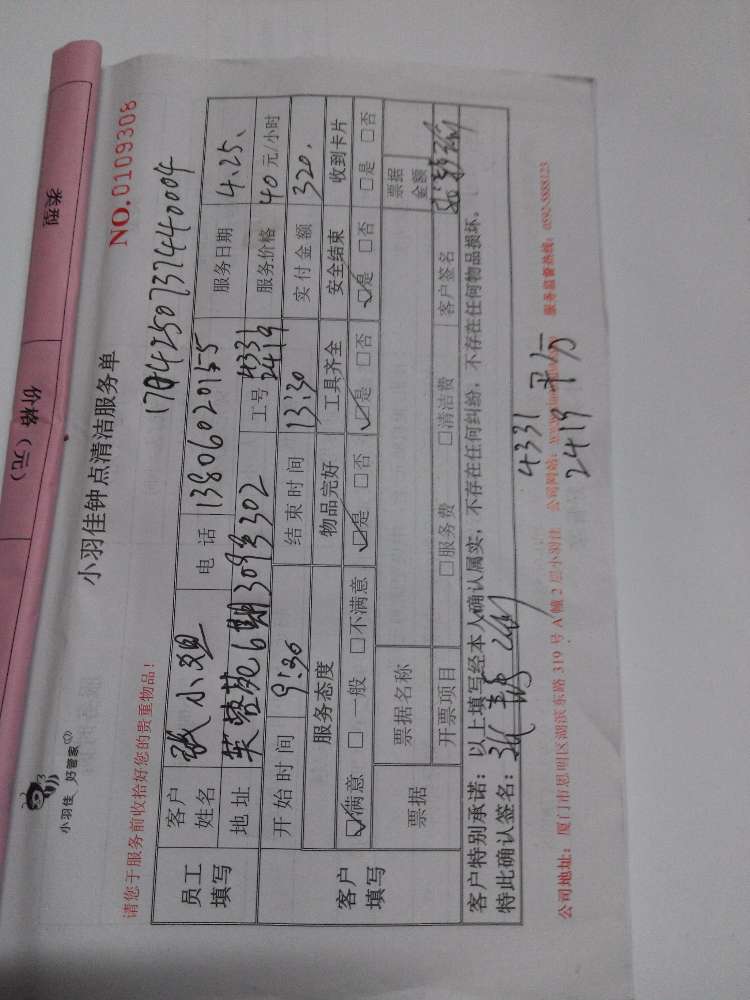 类型
价格（元）
小羽佳 好管家
小羽佳钟点清洁服务单
NO.0109308
请您于服务前收拾好您的贵重物品!
员工填写
客户姓名 张小姐 电话 13806020155 服务日期 4.25、
地址 芙蓉苑6期309号302 工号 4331 2419 服务价格 40元/小时
客户填写
开始时间 9:30 结束时间 13:30 实付金额 320.
服务态度 物品完好 工具齐全 安全结束 收到卡片
☑满意 □一般 □不满意 ☑是 □否 ☑是 □否 ☑是 □否 □是 □否
票据 票据名称 票据金额
开票项目 □服务费 □清洁费 客户签名
客户特别承诺：以上填写经本人确认属实，不存在任何纠纷，不存在任何物品损坏。
特此确认签名：
4331 平方
2419
公司地址：厦门市思明区湖滨东路 319 号 A 幢 2 层小羽佳 公司网站： 服务监督热线：0592-5888123